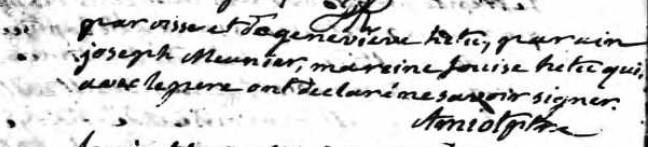 paroisse et de genevieve hetu, parain
joseph Meunier, mareine Louise hetu qui,
avec le pere ont declaré ne savoir signer.
Amiot ptre